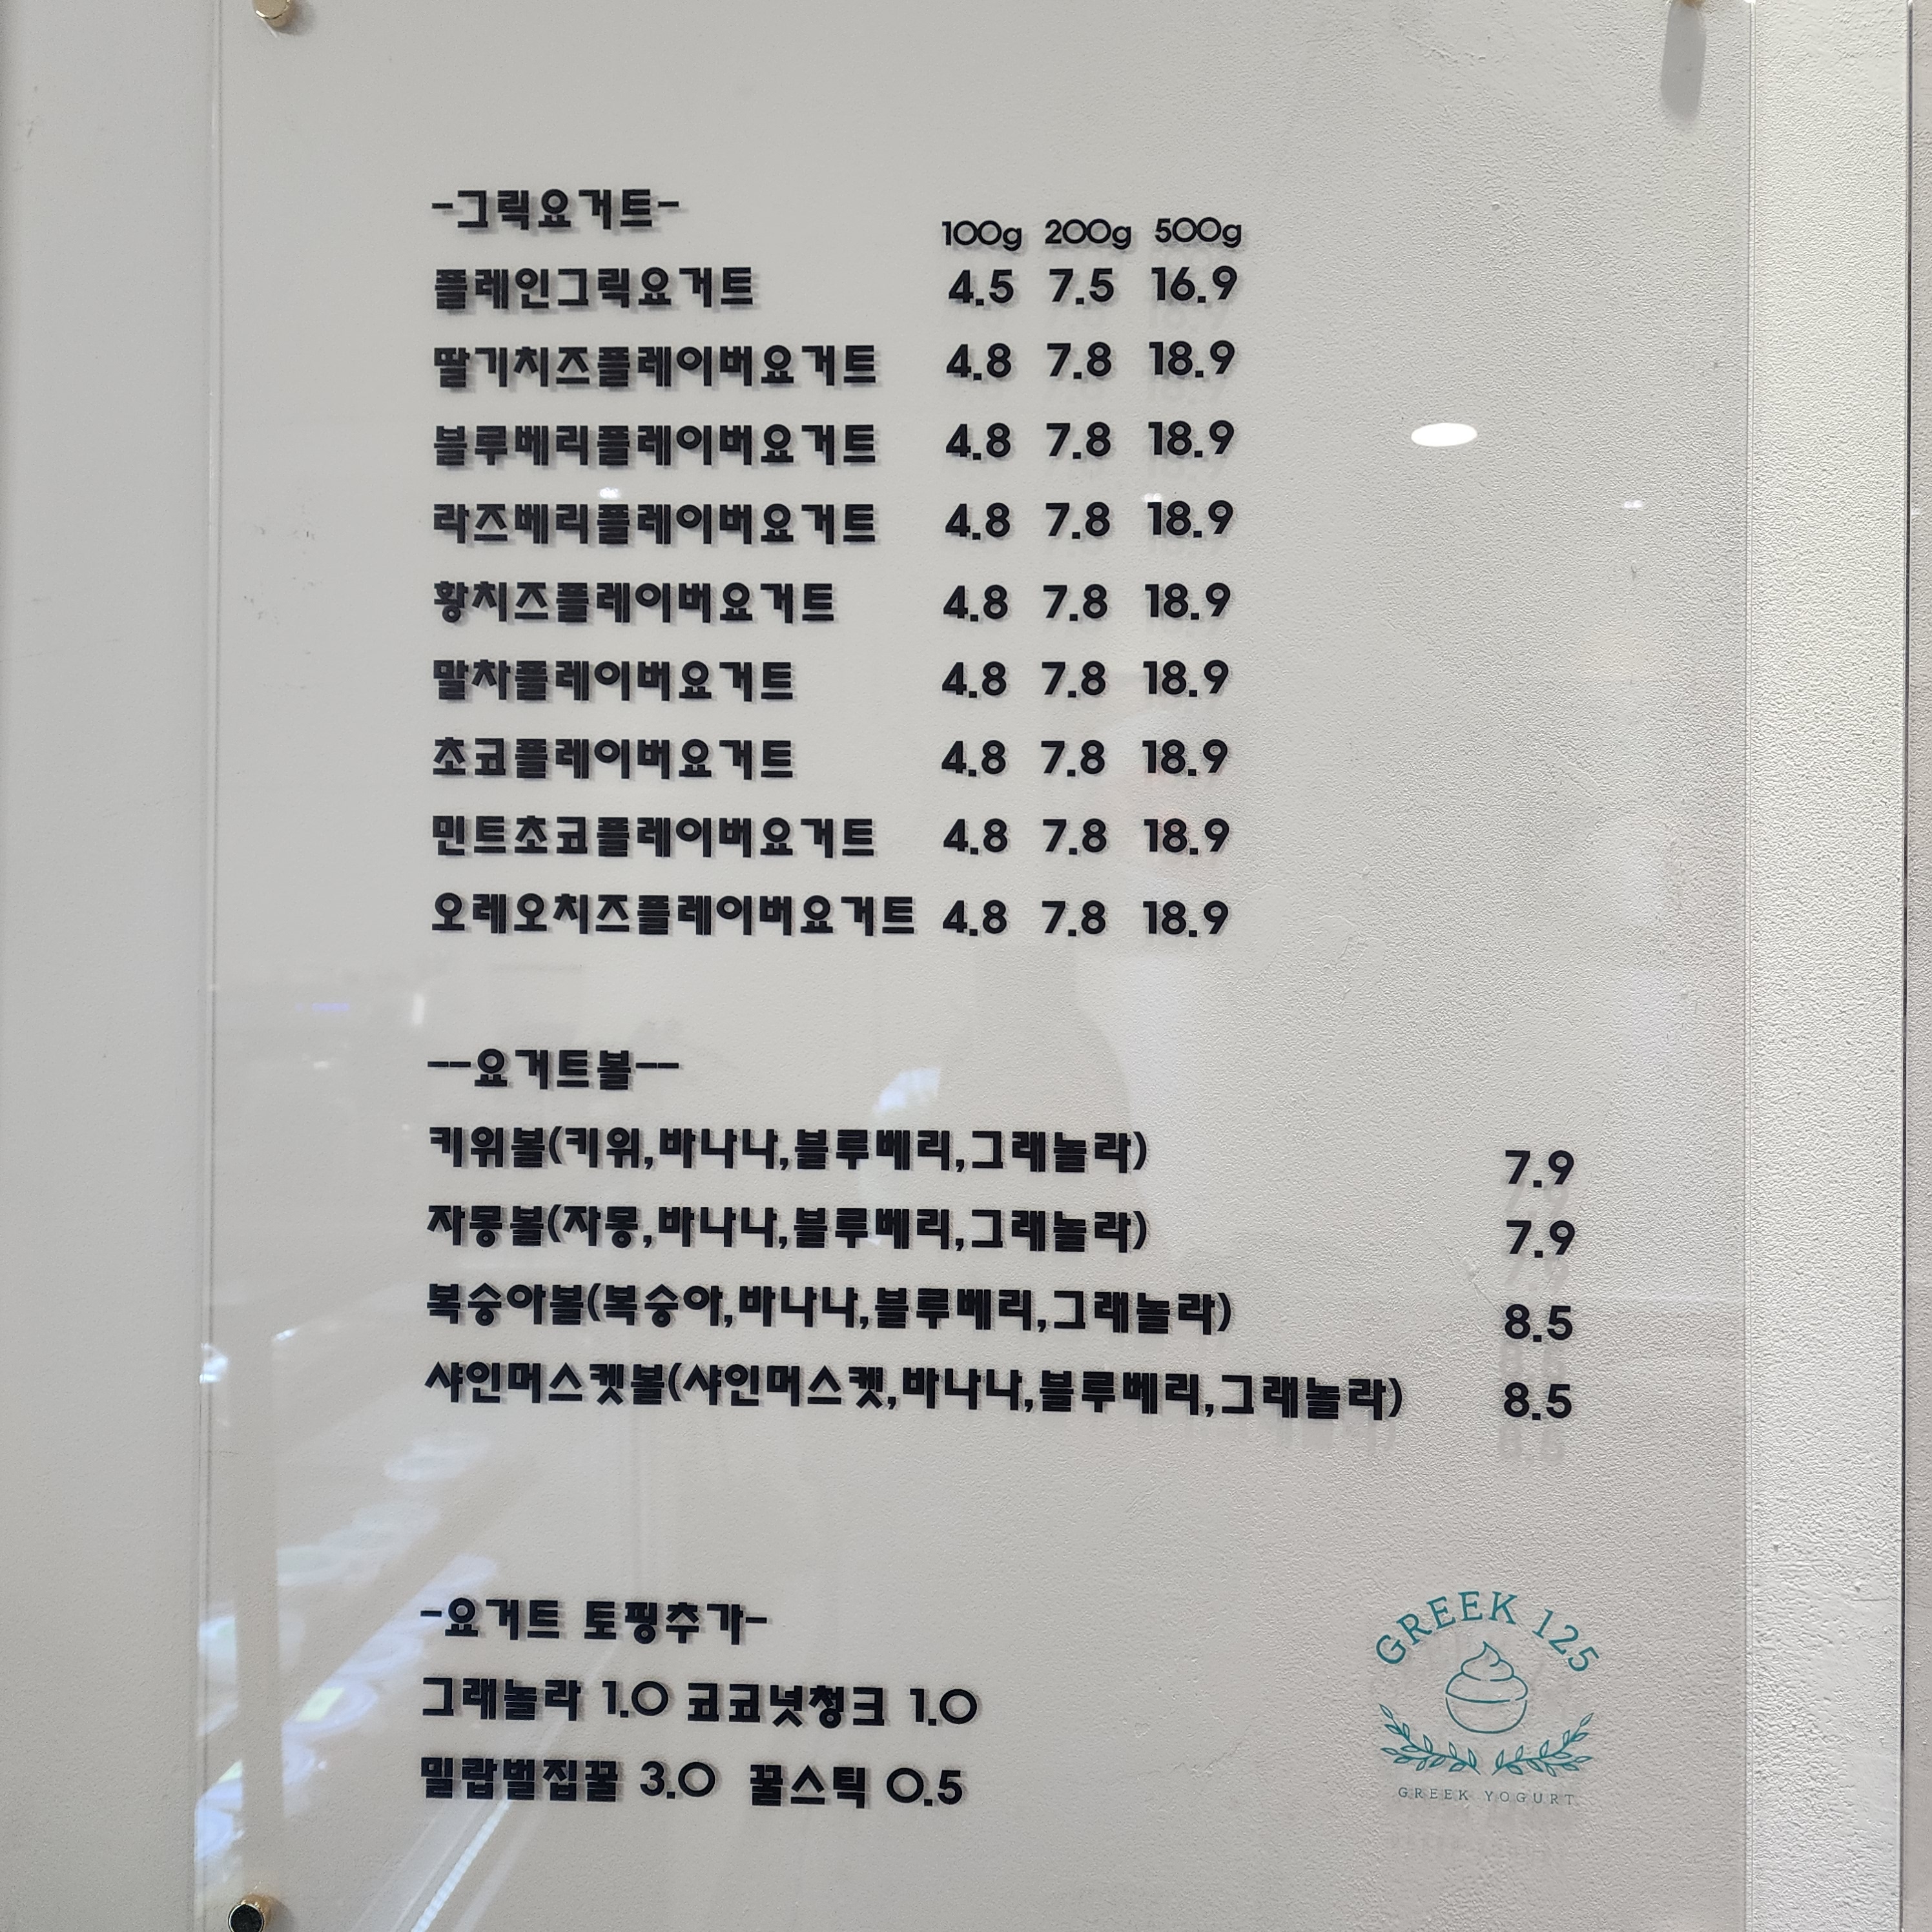 -그릭요거트-
100g 200g 500g
플레인그릭요거트 4.5 7.5 16.9
딸기치즈플레이버요거트 4.8 7.8 18.9
블루베리플레이버요거트 4.8 7.8 18.9
라즈베리플레이버요거트 4.8 7.8 18.9
황치즈플레이버요거트 4.8 7.8 18.9
말차플레이버요거트 4.8 7.8 18.9
초코플레이버요거트 4.8 7.8 18.9
민트초코플레이버요거트 4.8 7.8 18.9
오레오치즈플레이버요거트 4.8 7.8 18.9
--요거트볼--
키위볼(키위,바나나,블루베리,그래놀라) 7.9
자몽볼(자몽,바나나,블루베리,그래놀라) 7.9
복숭아볼(복숭아,바나나,블루베리,그래놀라) 8.5
샤인머스켓볼(샤인머스켓,바나나,블루베리,그래놀라) 8.5
-요거트 토핑추가-
그래놀라 1.0 코코넛청크 1.0
밀랍벌집꿀 3.0 꿀스틱 0.5
GREEK 125
GREEK YOGURT